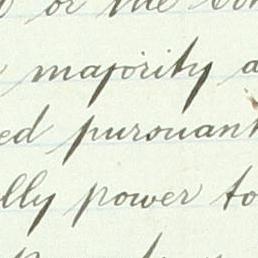 or the
majority a
ed pursuant
lly power to